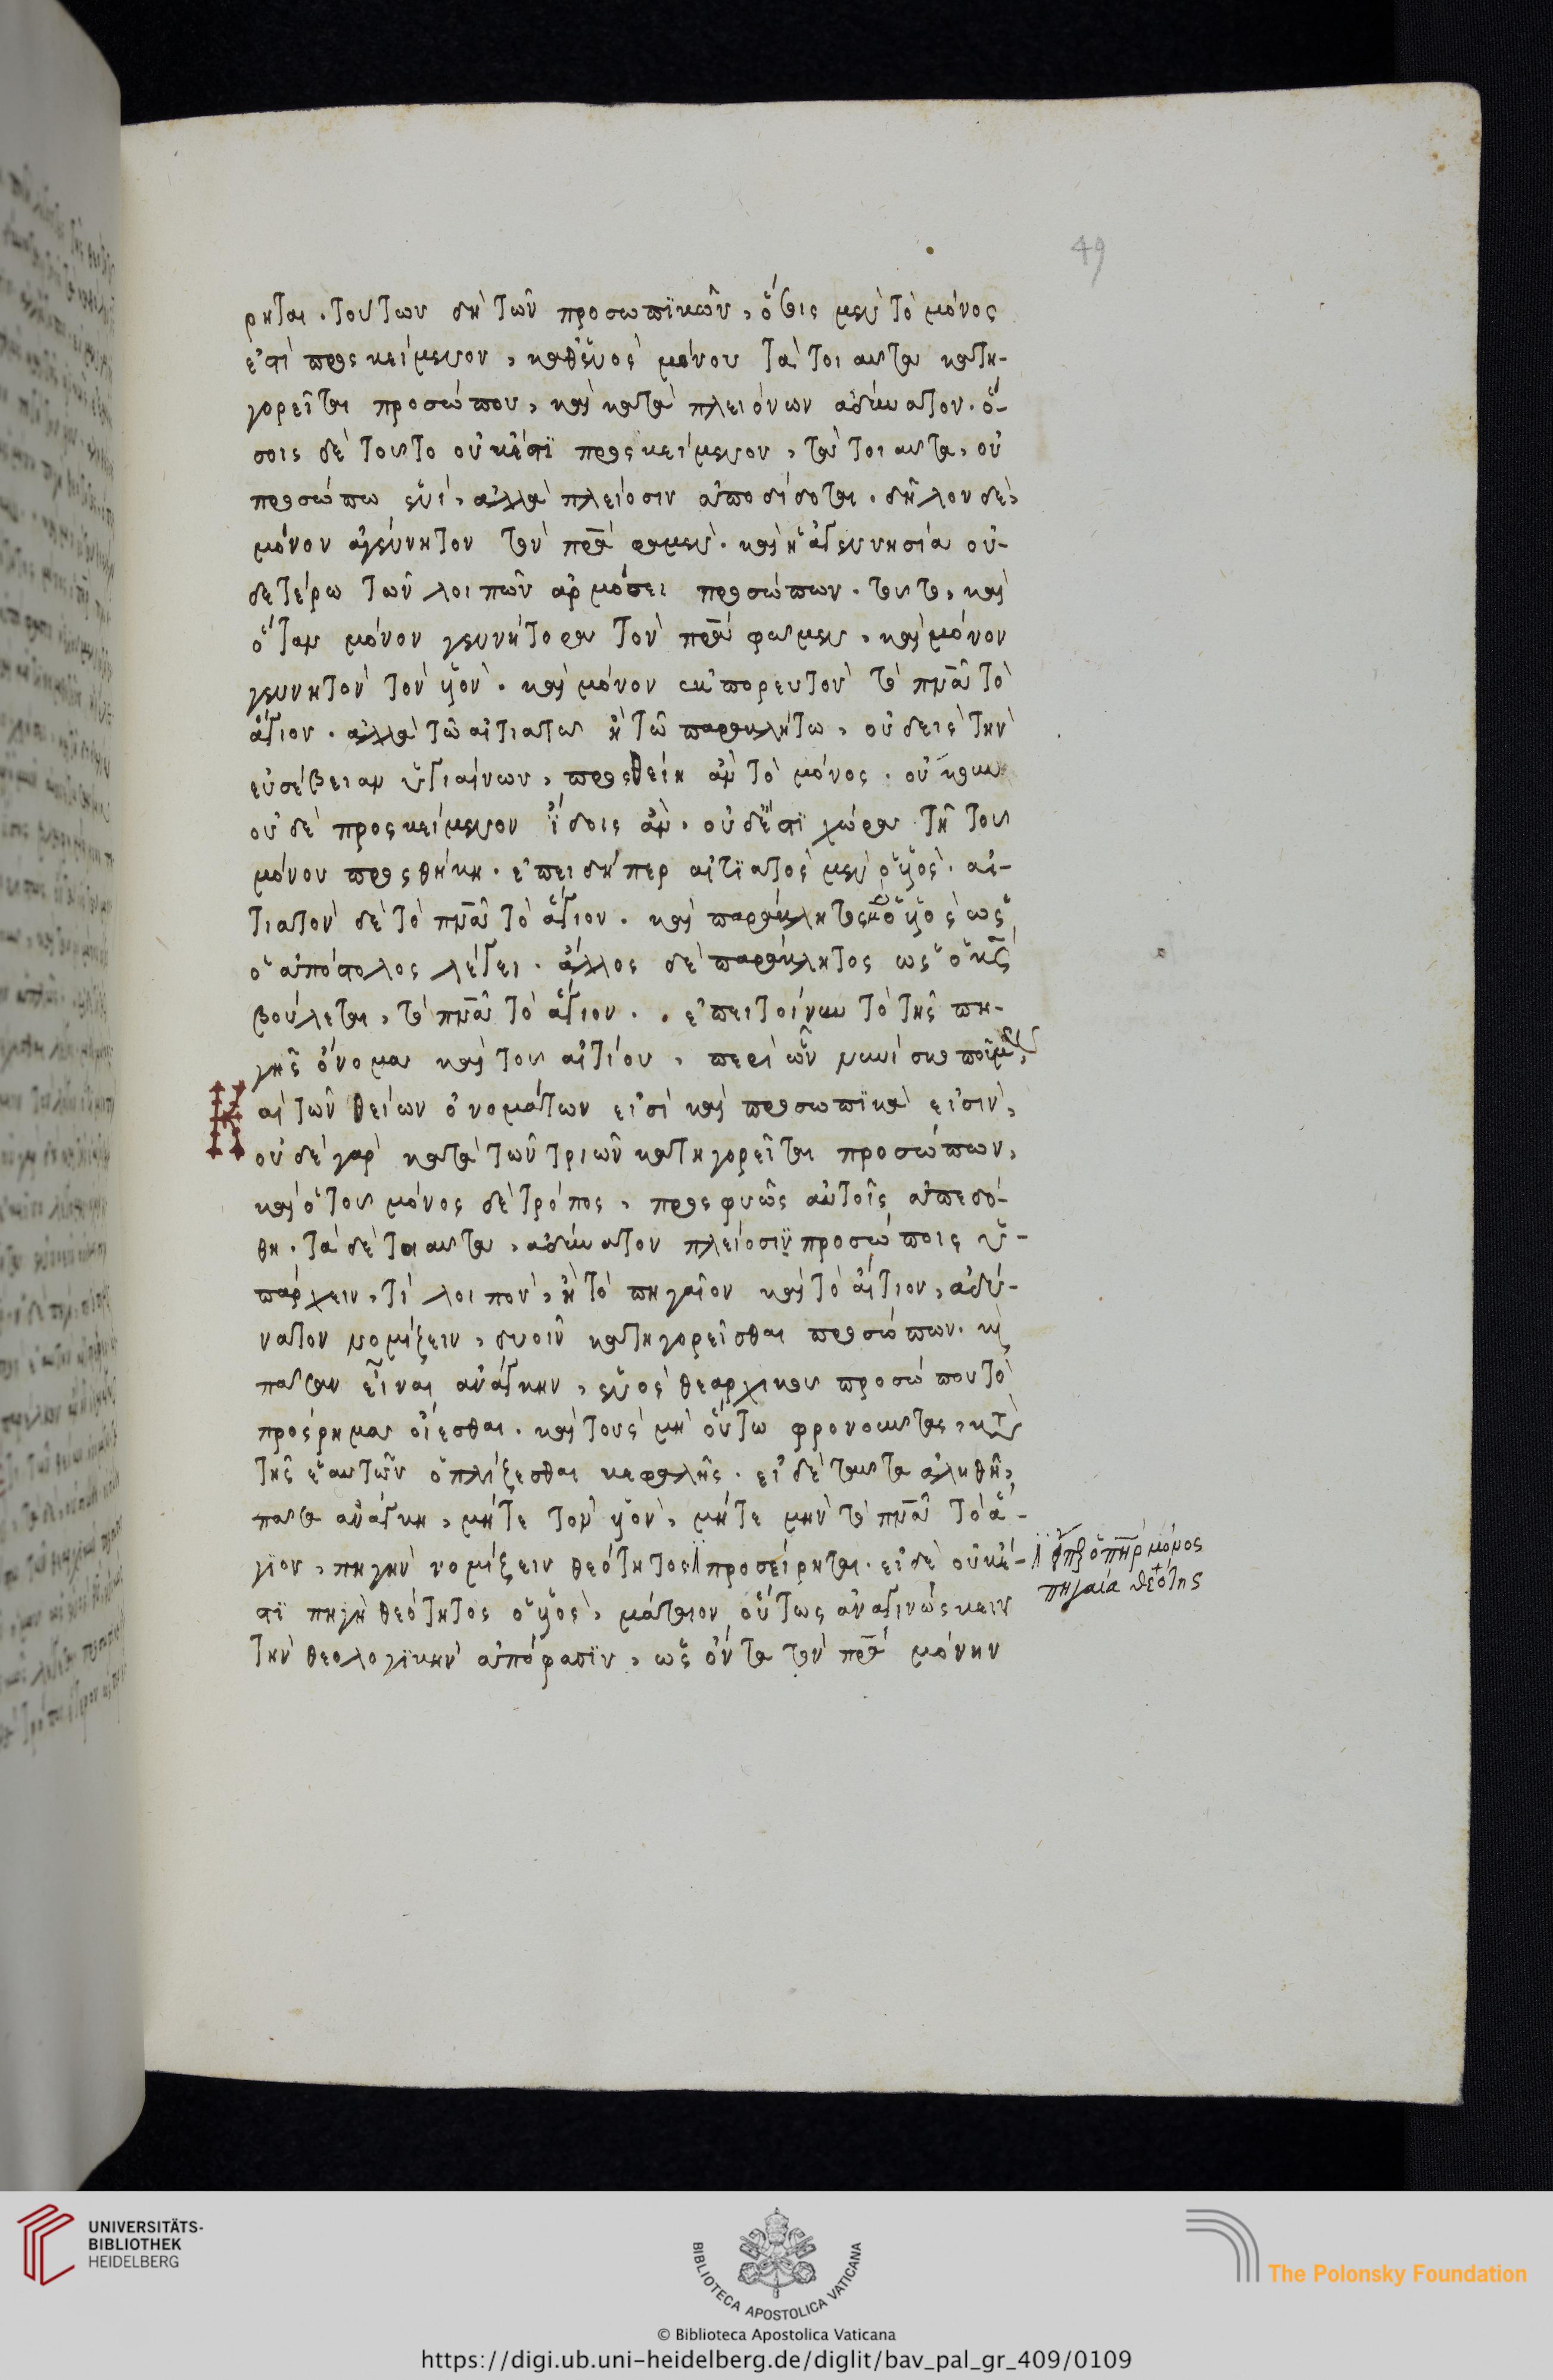 49
ρηται. τούτων δὴ τῶν προσωπϊκῶν, ὅσοις μεν τὸ μόνος
ἐστὶ προςκείμενον, καθενὸς μόνου τὰ τοιαῦτα κατη-
γορεῖται προσώπου, καὶ κατὰ πλειόνων ἀδύνατον. ὅ-
σοις δὲ τοῦτο οὐκέστϊ προςκείμενον, τὰ τοιαῦτα, οὐ
προσώπω ἑνὶ, ἀλλὰ πλείοσιν ἀποδίδοται. δῆλον δὲ,
μόνον ἀγέννητον τὸν πρα φαμεν. καὶ ἡ ἀγεννησία οὐ-
δετέρω τῶν λοιπῶν ἁρμόσει προσώπων. τοῦτο, καὶ
ὅταν μόνον γεννήτορα τὸν πρα φαμεν, καὶ μόνον
γεννητὸν τὸν υἱὸν. καὶ μόνον ἐκπορευτὸν τὸ πνα τὸ
ἅγιον. ἀλλὰ τῶ αἰτιατῶ ἢ τῶ παρακλήτω, οὐδεὶς τὴν
εὐσέβειαν ὑγιαίνων, προςθείη ἂν τὸ μόνος. οὔκουν
οὐδὲ προςκείμενον ἴδοις ἂν. οὐδέστϊ χώρα τῆ τοῦ
μόνου προςθήκη. ἐπειδήπερ αἰτϊατὸς μεν ὁ υἱὸς. αἰ-
τιατὸν δὲ τὸ πνα τὸ ἅγιον. καὶ παράκλητος μὲν ὁ υἱὸς ὡς
ὁ ἀπόστολος λέγει. ἄλλος δὲ παράκλητος ὡς ὁ κς
βούλεται, τὸ πνα τὸ ἅγιον. . ἐπεὶ τοίνυν τὸ τῆς πη-
γῆς ὄνομα καὶ τοῦ αἰτίου, περὶ ὧν νυνὶ σκοποῦμεν,
Καὶ τῶν θείων ὀνομάτων εἰσὶ καὶ προσωπϊκὰ εἰσὶν,
οὐδὲ γὰρ κατὰ τῶν τριῶν κατηγορεῖται προσώπων,
καὶ ὁ τοῦ μόνος δὲ τρόπος, προςφυῶς αὐτοῖς ἀπεδό-
θη. τὰ δὲ τοιαῦτα, ἀδύνατον πλείοσϊν προσώποις ὑ-
πάρχειν, τί λοιπὸν, ἢ τὸ πηγαῖον καὶ τὸ αἴτιον, ἀδύ-
νατον νομίζειν, δυοῖν κατηγορεῖσθαι προσώπων. κ
πᾶσαν εἶναι ἀνάγκην, ἑνὸς θεαρχικοῦ προσώπου τὸ
πρόςρημα οἴεσθαι. καὶ τοὺς μὴ οὕτω φρονοῦντας, κατὰ
τῆς ἑαυτῶν ὁπλίζεσθαι κεφαλῆς. εἰ δὲ ταῦτα ἀληθῆ,
πᾶσα ἀνάγκη, μήτε τὸν υἱὸν, μήτε μὴν τὸ πνα τὸ ἅ-
γϊον, πηγὴν νομίζειν θεότητος προσείρηται. εἰ δὲ οὐκέ-
στϊ πηγὴ θεότητος ὁ υἱὸς, μάταιον οὕτως ἀναγινώσκειν
τὴν θεολογϊκὴν ἀπόφασϊν, ὡς ὄντα τὸν πρα μόνην
ὁ πηρ μόνος
πηγαία θεότης
UNIVERSITÄTS-
BIBLIOTHEK
HEIDELBERG
BIBLIOTECA APOSTOLICA VATICANA
The Polonsky Foundation
© Biblioteca Apostolica Vaticana
https://digi.ub.uni-heidelberg.de/diglit/bav_pal_gr_409/0109